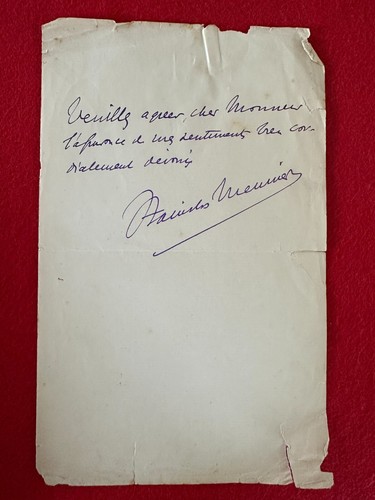 Veuillez agréer, cher Monsieur
l'assurance de mes sentiments très cor-
dialement dévoués
Stanislas Meunier